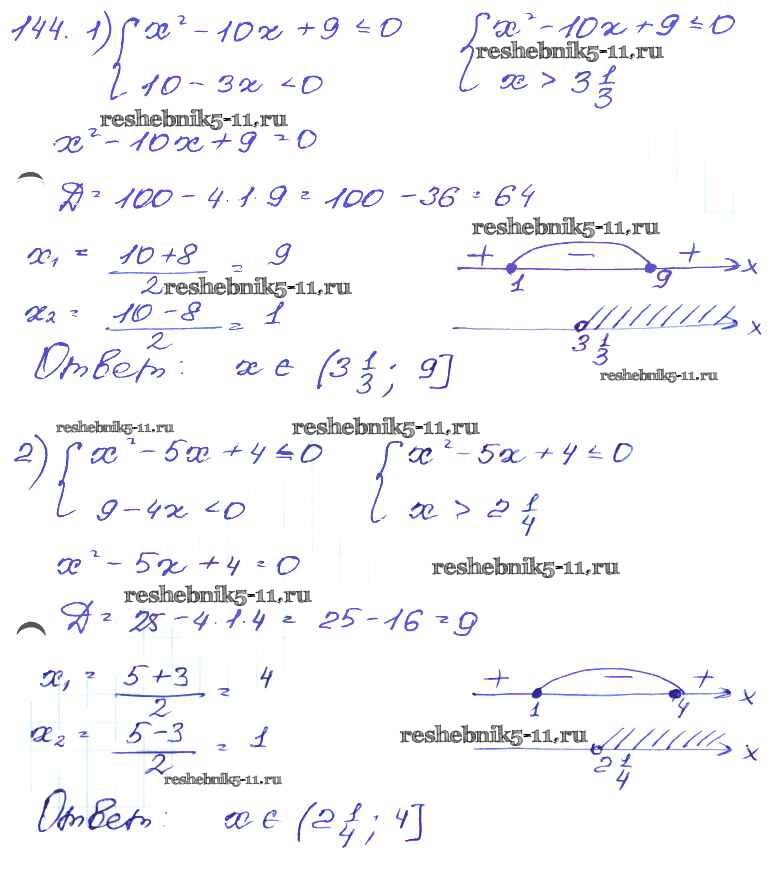 144. 1) { x² - 10x + 9 ≤ 0    { x² - 10x + 9 ≤ 0
reshebnik5-11.ru
10 - 3x < 0    x > 3 1/3
reshebnik5-11.ru
x² - 10x + 9 = 0
Д = 100 - 4·1·9 = 100 - 36 = 64
reshebnik5-11.ru
x₁ = (10+8)/2 = 9    + − + x
1 9
reshebnik5-11.ru
x₂ = (10-8)/2 = 1    x
3 1/3
Ответ: x ∈ (3 1/3; 9]
reshebnik5-11.ru
reshebnik5-11.ru reshebnik5-11.ru
2) { x² - 5x + 4 ≤ 0    { x² - 5x + 4 ≤ 0
9 - 4x < 0    x > 2 1/4
x² - 5x + 4 = 0
reshebnik5-11.ru
reshebnik5-11.ru
Д = 25 - 4·1·4 = 25 - 16 = 9
x₁ = (5+3)/2 = 4    + − + x
1 4
x₂ = (5-3)/2 = 1    x
reshebnik5-11.ru
2 1/4
reshebnik5-11.ru
Ответ: x ∈ (2 1/4; 4]